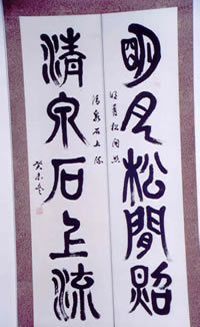 明月松間照
明月松间照
清泉石上流
清泉石上流
癸未